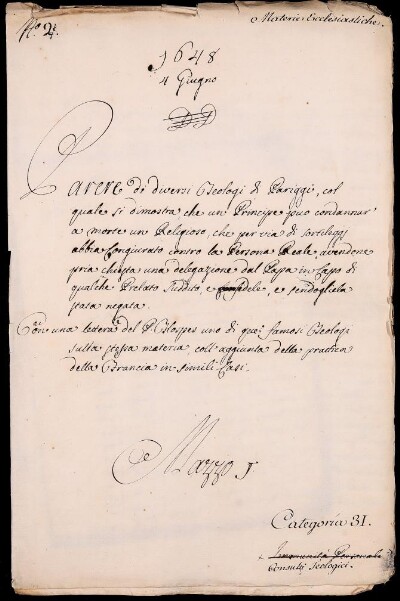 No. 2.
Materie Ecclesiastiche.
1648
4 Giugno
Parere di diversi Teologi di Pariggi, col
quale si dimostra che un Principe può condannar
a morte un Religioso, che per via di sortileggj
abbia congiurato contro la Persona Reale, avendone
pria chiesta una delegazione dal Papa in Capo di
qualche Prelato suddito, e fedele, e sendogliela
stata negata.
Con una lettera del P. uno di quei famosi Teologi
sulla stessa materia, coll'aggiunta della prattica
della Francia in simili Casi.
Mazzo 1.
Categoria 31.
Immunità Personale
Consulti Teologici.